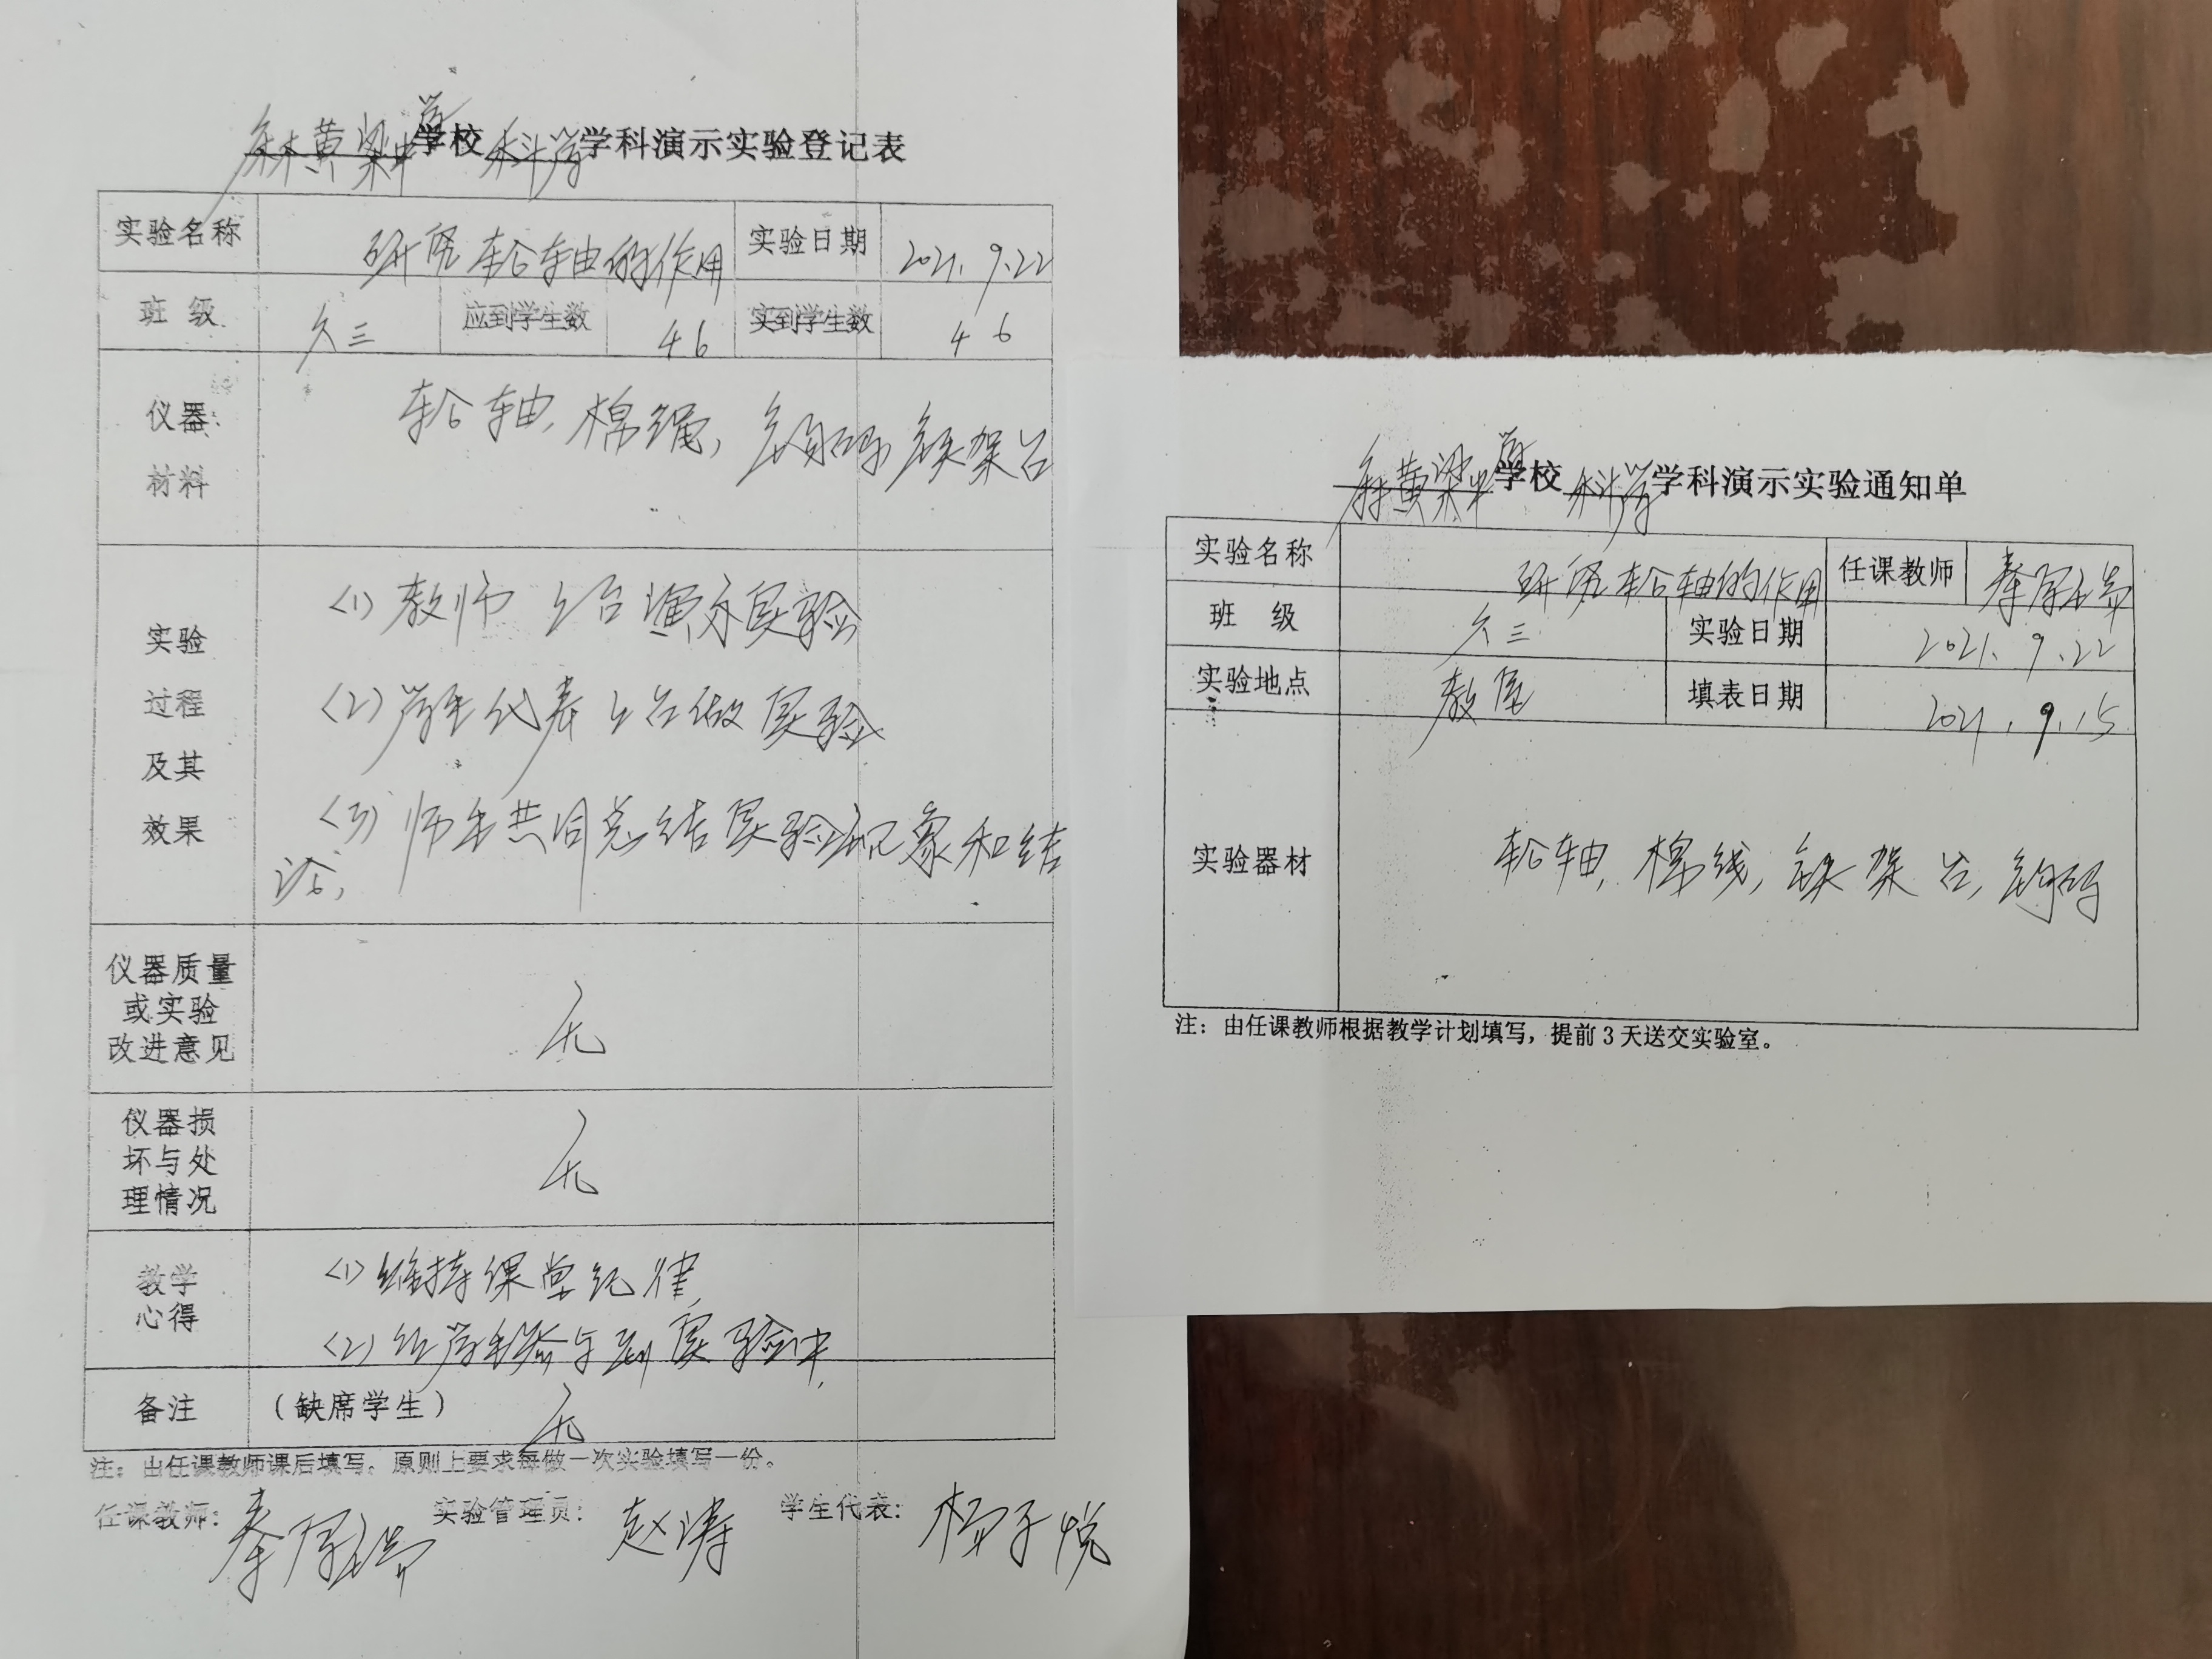 黄梁中学学校 科学 学科演示实验登记表
实验名称 研究轮轴的作用 实验日期 2021.9.22
班 级 六三 应到学生数 46 实到学生数 46
仪器 材料 轮轴,棉绳,钩码 铁架台
实验过程及其效果
(1) 教师上台演示实验
(2) 学生代表上台做实验
(3) 师生共同总结实验现象和结
论,
仪器质量或实验改进意见 无
仪器损坏与处理情况 无
教学心得
(1) 维持课堂纪律,
(2) 让学生参与到实验中,
备注 (缺席学生) 无
注:由任课教师课后填写,原则上要求每做一次实验填写一份。
任课教师:秦 实验管理员:赵涛 学生代表:杨子悦
黄梁中学学校 科学 学科演示实验通知单
实验名称 研究轮轴的作用 任课教师 秦
班 级 六三 实验日期 2021.9.22
实验地点 教室 填表日期 2021.9.15
实验器材 轮轴,棉线,铁架台,钩码
注:由任课教师根据教学计划填写,提前3天送交实验室。